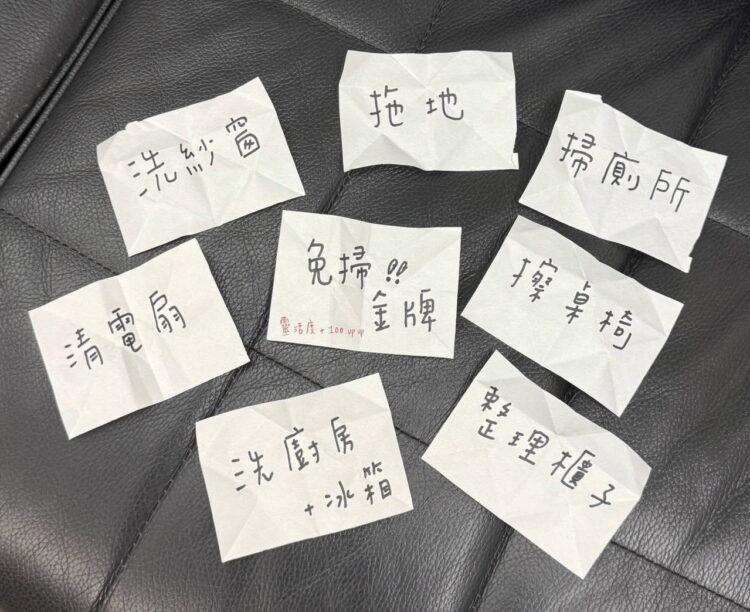 拖地
洗紗窗
掃廁所
免掃!!
金牌
靈活度+100 up up
擦桌椅
清電扇
整理櫃子
洗廚房
+冰箱